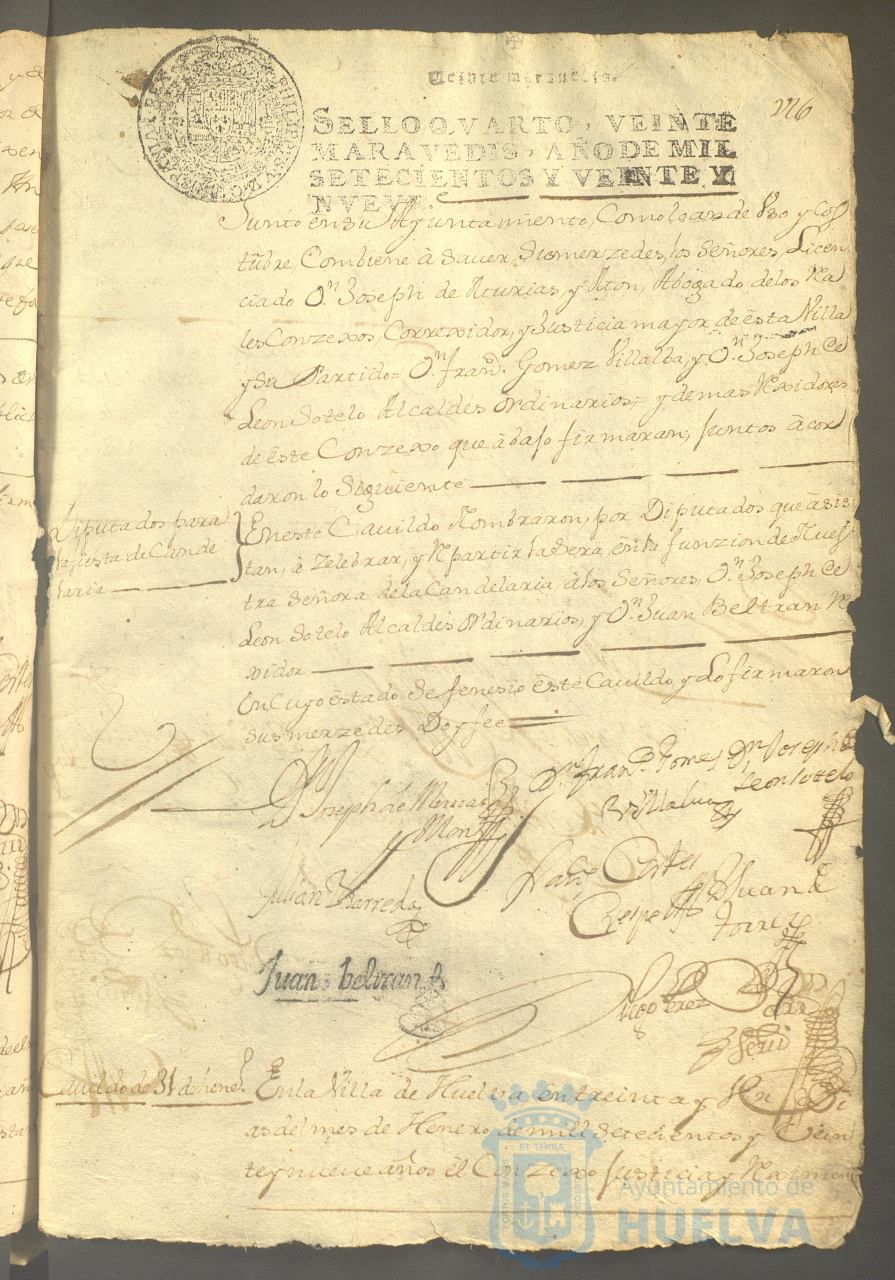 Veinte maravedis.
126
SELLO QVARTO, VEINTE
MARAVEDIS, AÑO DE MIL
SETECIENTOS Y VEINTE Y
NVEVE.
Junto en su Ayuntamiento, Como lo an de Vso y Cos
tũbre, Combiene â Saver, Sus merzedes, los Señores, Licen
ciado Dn. Joseph de Asturias, y Mon, Abogado de los Rea
les Conzexos, Correxidor, y Justicia mayor de ésta Villa
y Su Partido= Dn. Fran.co Gomez Villalba, y Dn. Joseph de
Leon Sotelo Alcaldes ordinarios,= y demas Rexidores
de éste Conzexo que âbajo firmaran, Juntos âcor
daron lo Siguiente
Diputados para
la fiesta de Cande
laria
En este Cavildo Nombraron, por Diputados que âsis
tan, â Zelebrar, y Repartir la Sera, en la funzion de Nues
tra Señora de la Candelaria, â los Señores, Dn. Joseph de
Leon Sotelo Alcaldes ordinarios, y Dn. Juan Beltran Re
xidor
En Cuyo estado Se fenesio éste Cavildo y Lo firmaron
Sus merzedes Doy fee
Joseph de Asturias
y Mon
Dn. Fran.co Gomez
Villalva
Dn Joseph de
Leon Sotelo
Julian Barreda
Cortes
Crespo
Juan de
Torres
Juan beltran
Diego Perez
Cavildo de 31 de hene.o
En la Villa de Huelva en treinta y Vn Di
as del mes de Henero de mill Setecientos y Vein
te y nueve años el Conzexo Justicia y Reximiento
Ayuntamiento de
HUELVA